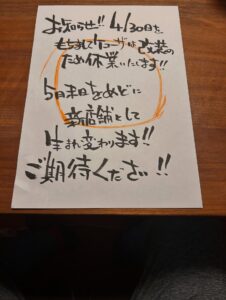 お知らせ!! 4/30日を
もちましてクローザは改装の
ため休業いたします!!
5月末日をめどに
新店舗として
生まれ変わります!!
ご期待ください!!